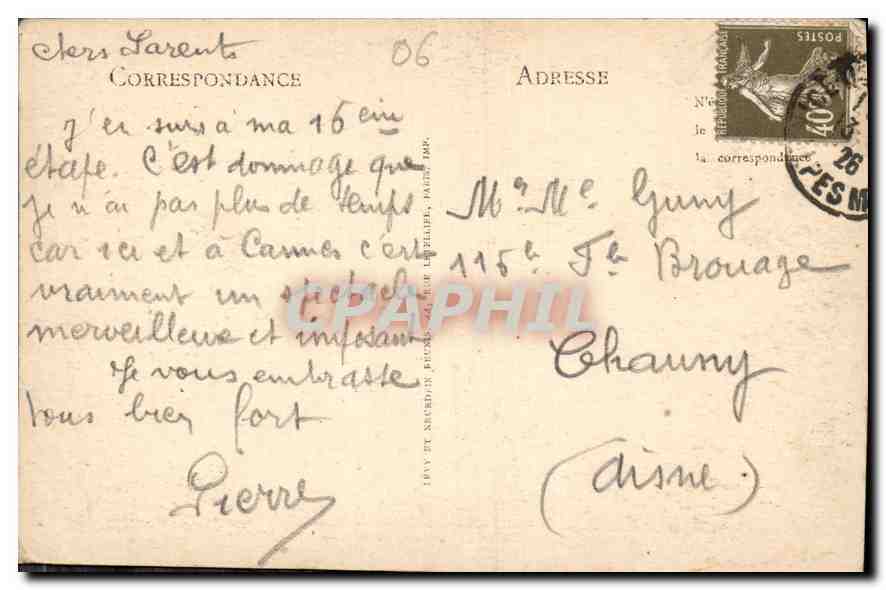 Chers Parents
06
CORRESPONDANCE
J'en suis à ma 16 eim
étape. C'est dommage que
je n'ai pas plus de temps
car ici et à Cannes c'est
vraiment un spectacle
merveilleux et imposant
Je vous embrasse
tous bien fort
Pierre
LÉVY ET NEURDEIN RÉUNIS, 44, RUE LETELLIER, PARIS. IMP.
ADRESSE
N'é
le
la correspondance
RÉPUBLIQUE FRANÇAISE
POSTES
40c
26
PES M
Mr Me Guny
115 b. Fb Brouage
Chauny
(Aisne.)
CPAPHIL